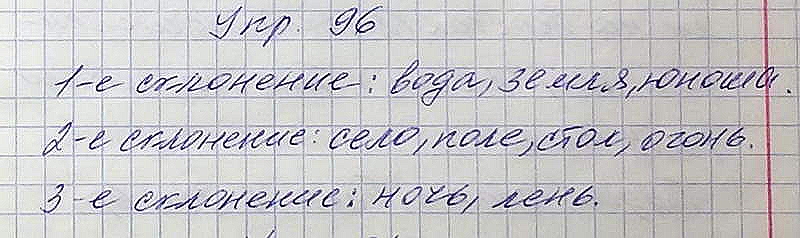 Упр. 96
1-е склонение: вода, земля, юноша.
2-е склонение: село, поле, стол, огонь.
3-е склонение: ночь, лень.